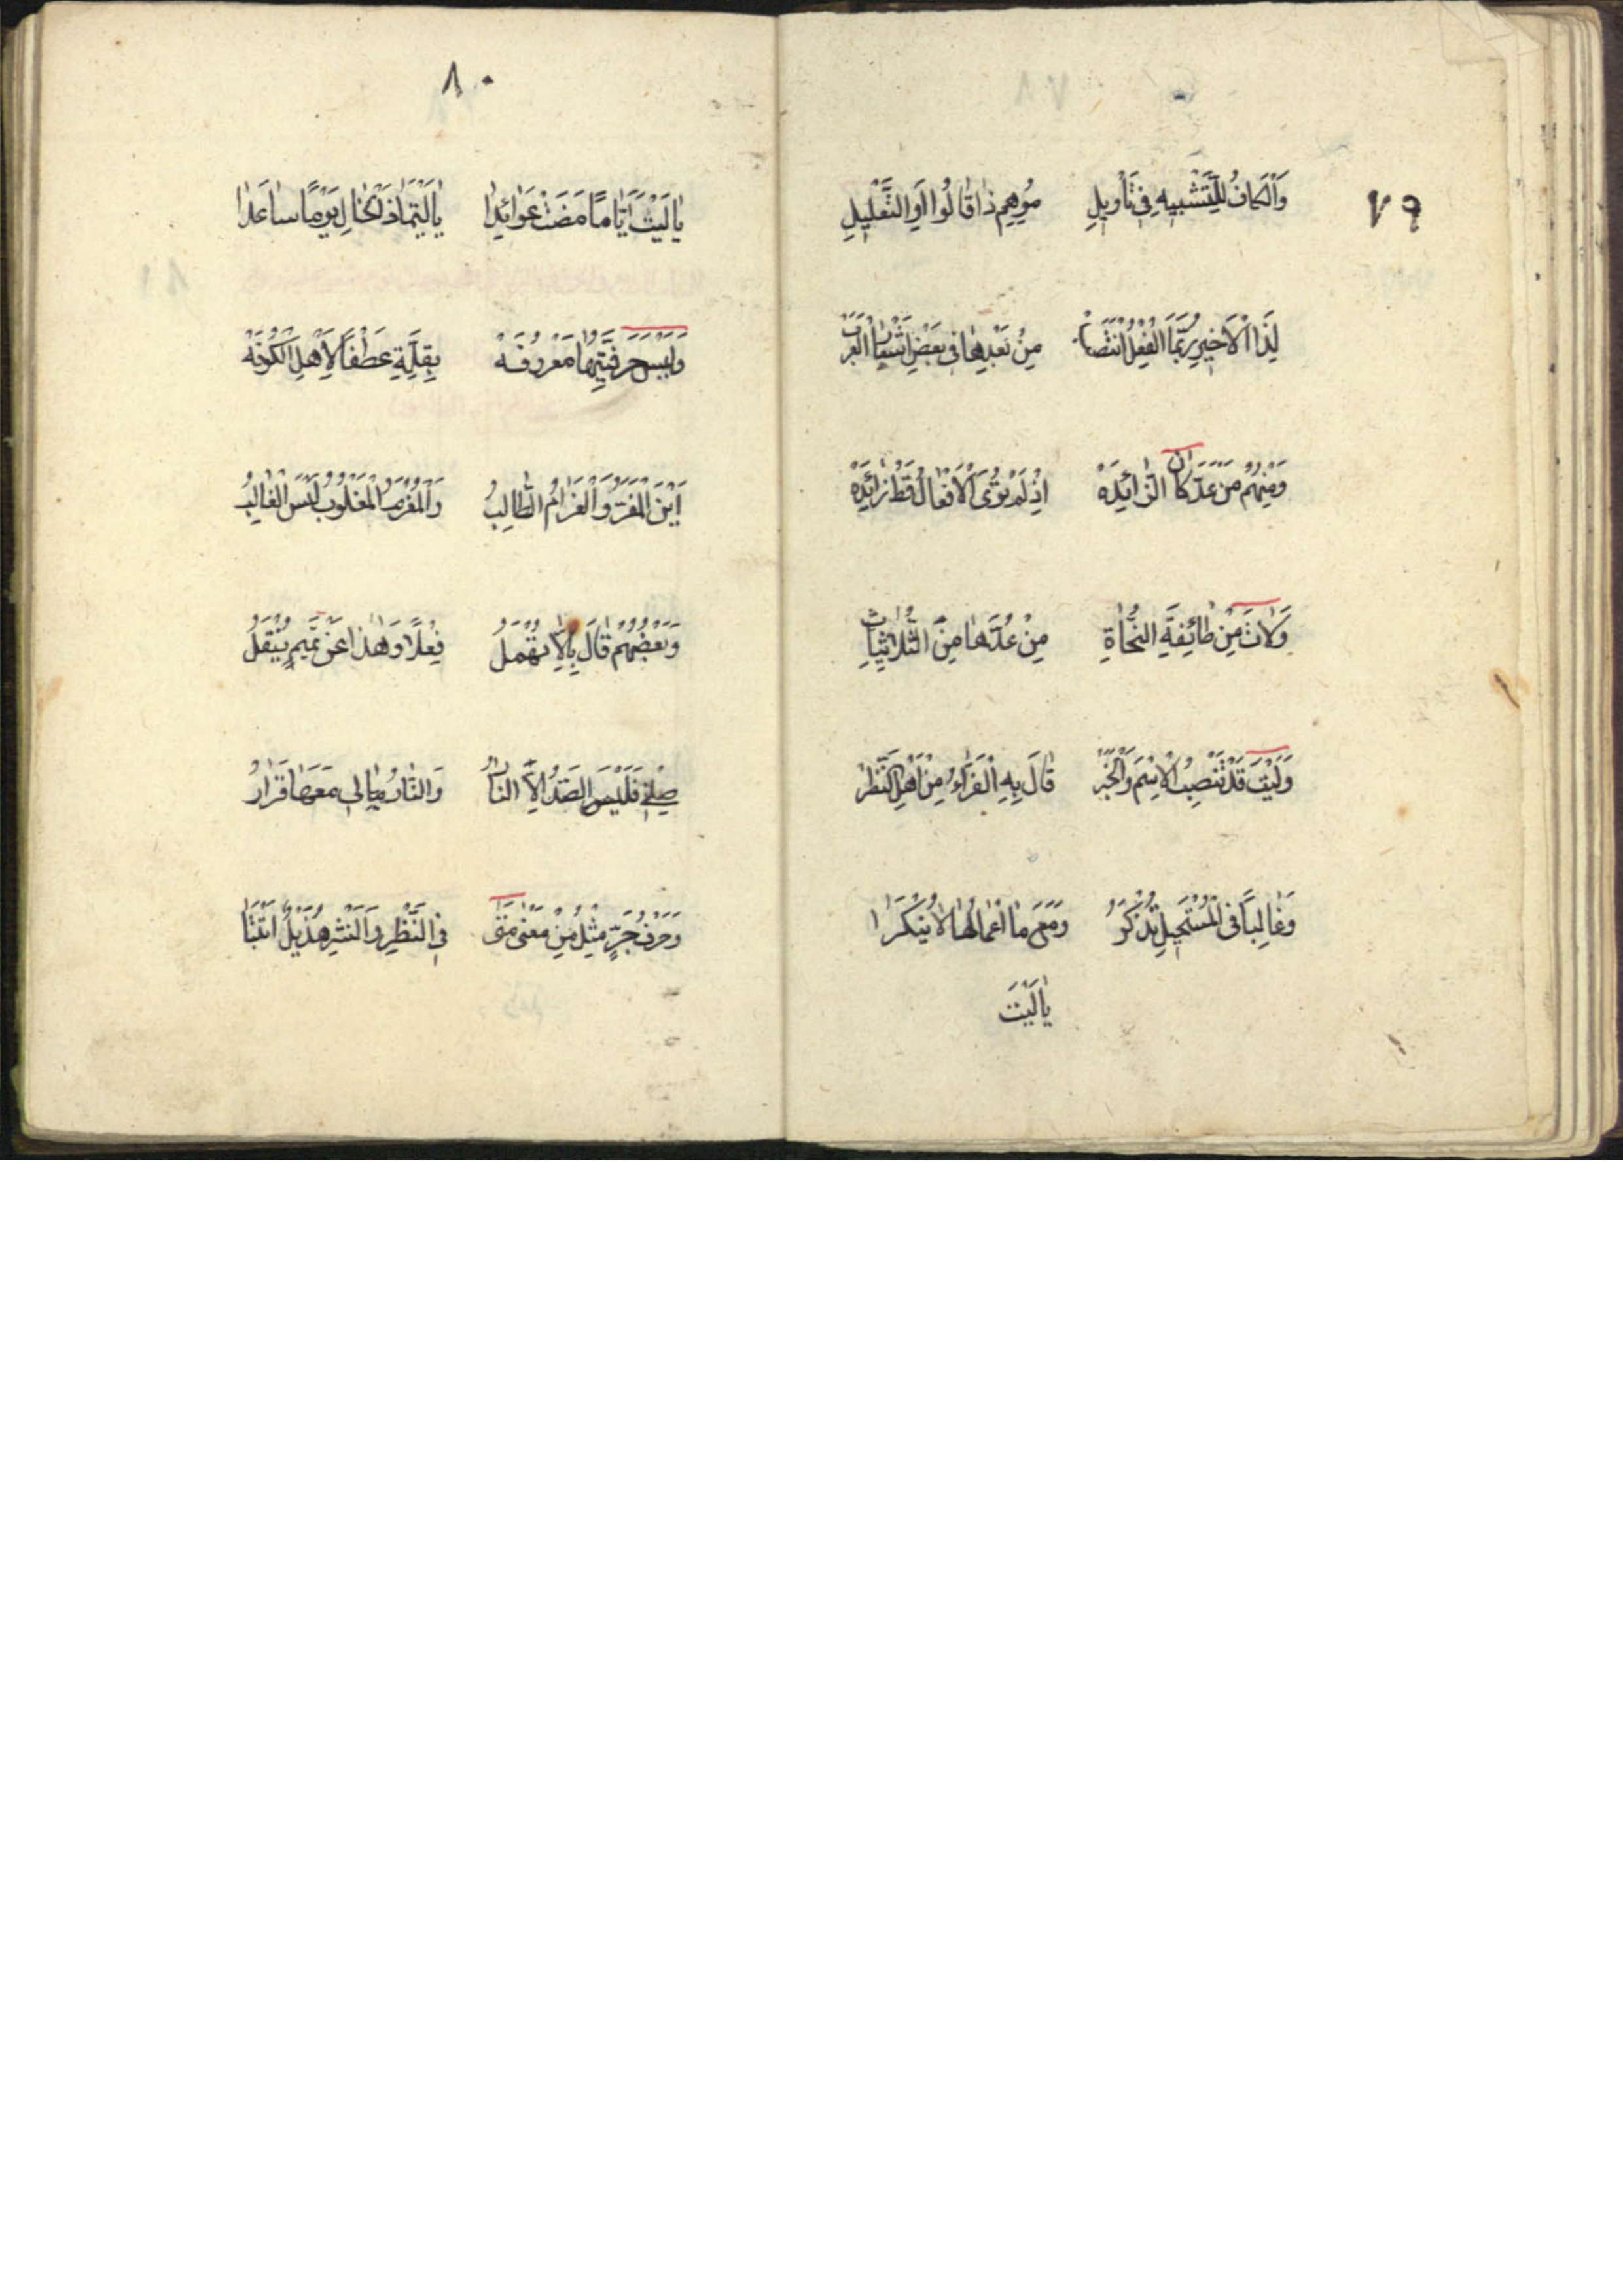 ٧٩
وَالْكَافُ لِلتَّشْبِيهِ فِي تَأْوِيلِ مُوهِمِ ذَا قَالُوا أَوِ التَّعْلِيلِ
لِذَا الْأَخِيرِ رُبَّمَا الْفِعْلُ انْتَصَبْ مِنْ بَعْدِهَا فِي بَعْضِ أَشْعَارِ الْعَرَبْ
وَمِنْهُمُ مَنْ عَدَّ كَانَ الزَّائِدَهْ إِذْ لَمْ تُرَى الْأَفْعَالُ قَطُّ زَائِدَهْ
وَلَاتَ مِنْ طَائِفَةِ النُّحَاةِ مِنْ عُدَّهَا مِنَ الثُّلَاثِيَّاتِ
وَلَيْتَ قَدْ تَنْصِبُ الْاِسْمَ وَالْخَبَرْ قَالَ بِهِ الْفَرَّاءُ مِنْ أَهْلِ النَّظَرْ
وَغَالِبًا فِي الْمُسْتَحِيلِ تُذْكَرُ وَمَعَ مَا اعْمَالُهَا لَا يُنْكَرَا
يَا لَيْتَ
٨٠
يَا لَيْتَ أَيَّامًا مَضَتْ عَوَائِدَا يَا لَيْتَمَا ذَلِكَ الْخَالِ يَوْمًا سَاعَدَا
وَلَيْسَ حَرْفِيَّتُهَا مَعْرُوفَهْ بِقِلَّةٍ عَطْفًا لِأَهْلِ الْكُوفَهْ
أَيْنَ الْمَفَرُّ وَالْغَرَامُ الطَّالِبُ وَالْمُغْرَمُ الْمَغْلُوبُ لَيْسَ الْغَالِبُ
وَبَعْضُهُمْ قَالَ بِإِلَّا تُهْمَلُ فِعْلًا وَهَذَا عَنْ تَمِيمٍ يُنْقَلُ
صِلْنِي فَلَيْسَ الصَّدُّ إِلَّا النَّارُ وَالنَّارُ مَا لِي مَعَهَا قَرَارُ
وَحَرْفُ جَرٍّ مِثْلُ مِنْ مَعْنًى مَتَى فِي النَّظْمِ وَالنَّثْرِ هُذَيْلٌ أَثْبَتَا